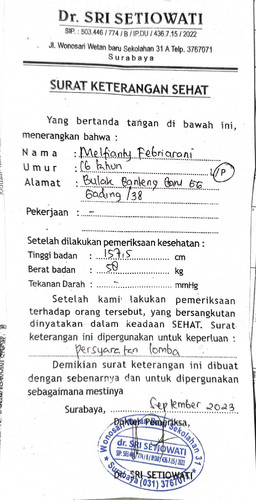 Dr. SRI SETIOWATI
SIP. : 503.446 / 774 / B / IP.DU / 436.7.15 / 2022
Jl. Wonosari Wetan baru Sekolahan 31 A Telp. 3767071
Surabaya
SURAT KETERANGAN SEHAT
Yang bertanda tangan di bawah ini,
menerangkan bahwa :
Nama : Melfianty Febriarani
Umur : 16 tahun P
Alamat : Bulak Banteng Baru Gg
Gading /38
Pekerjaan : -
Setelah dilakukan pemeriksaan kesehatan :
Tinggi badan : 157,5 cm
Berat badan : 50 kg
Tekanan Darah : - mmHg
Setelah kami lakukan pemeriksaan
terhadap orang tersebut, yang bersangkutan
dinyatakan dalam keadaan SEHAT. Surat
keterangan ini dipergunakan untuk keperluan :
persyaratan lomba
Demikian surat keterangan ini dibuat
dengan sebenarnya dan untuk dipergunakan
sebagaimana mestinya
Surabaya, September 2023
Dokter Pemeriksa,
Wonosari Wetan Baru Sekolahan 31
dr. SRI SETIOWATI
SIP. 503.446 / 774 / B / IP.DU / 436.7.15 / 2022
Surabaya (031) 3767071
Dr. SRI SETIOWATI